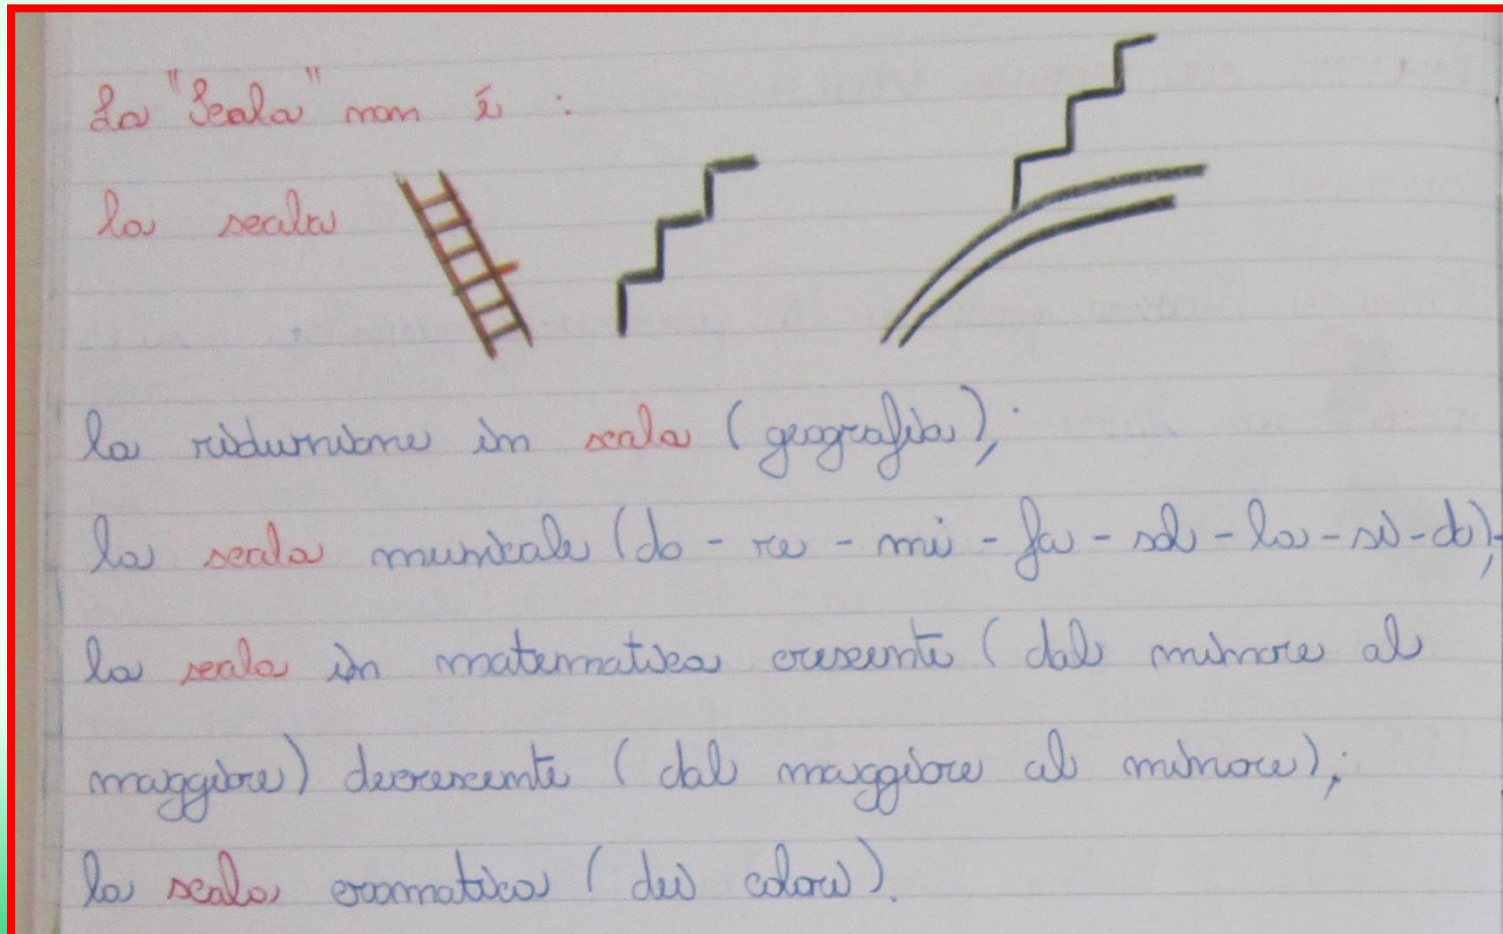 La "Scala" non é :
la scala
la riduzione in scala (geografia);
la scala musicale (do - re - mi - fa - sol - la - si - do);
la scala in matematica crescente (dal minore al
maggiore) decrescente (dal maggiore al minore);
la scala cromatica (dei colori).